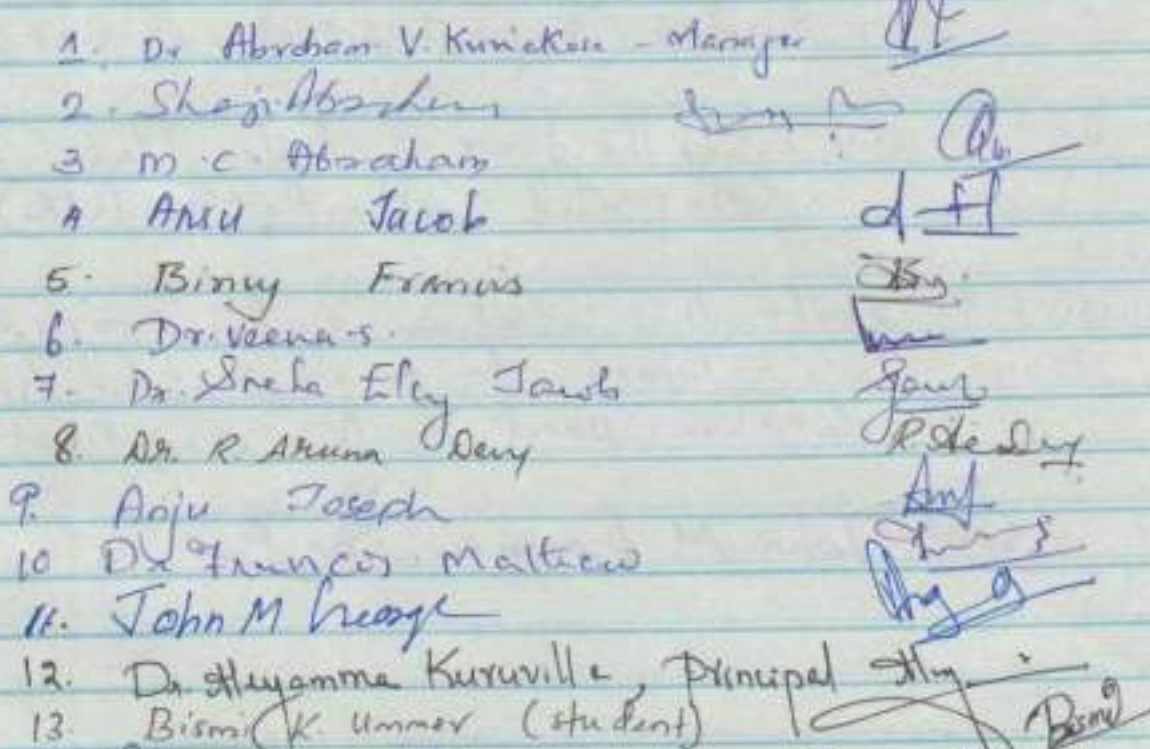 1. Dr Abraham V. Kuriakose - Manager
2. Shaji Abraham
3 M. C. Abraham
4 ANSU Jacob
5. Bincy Francis
6. Dr. Veena. S.
7. Dr. Sneha Elcy Jacob
8. Dr. R. Aruna Devy
9. Anju Joseph
10 Dr Francis Mathew
11. John M George
12. Dr. Aleyamma Kuruvilla, Principal
13. Bismi K. Ummer (student) Bismi